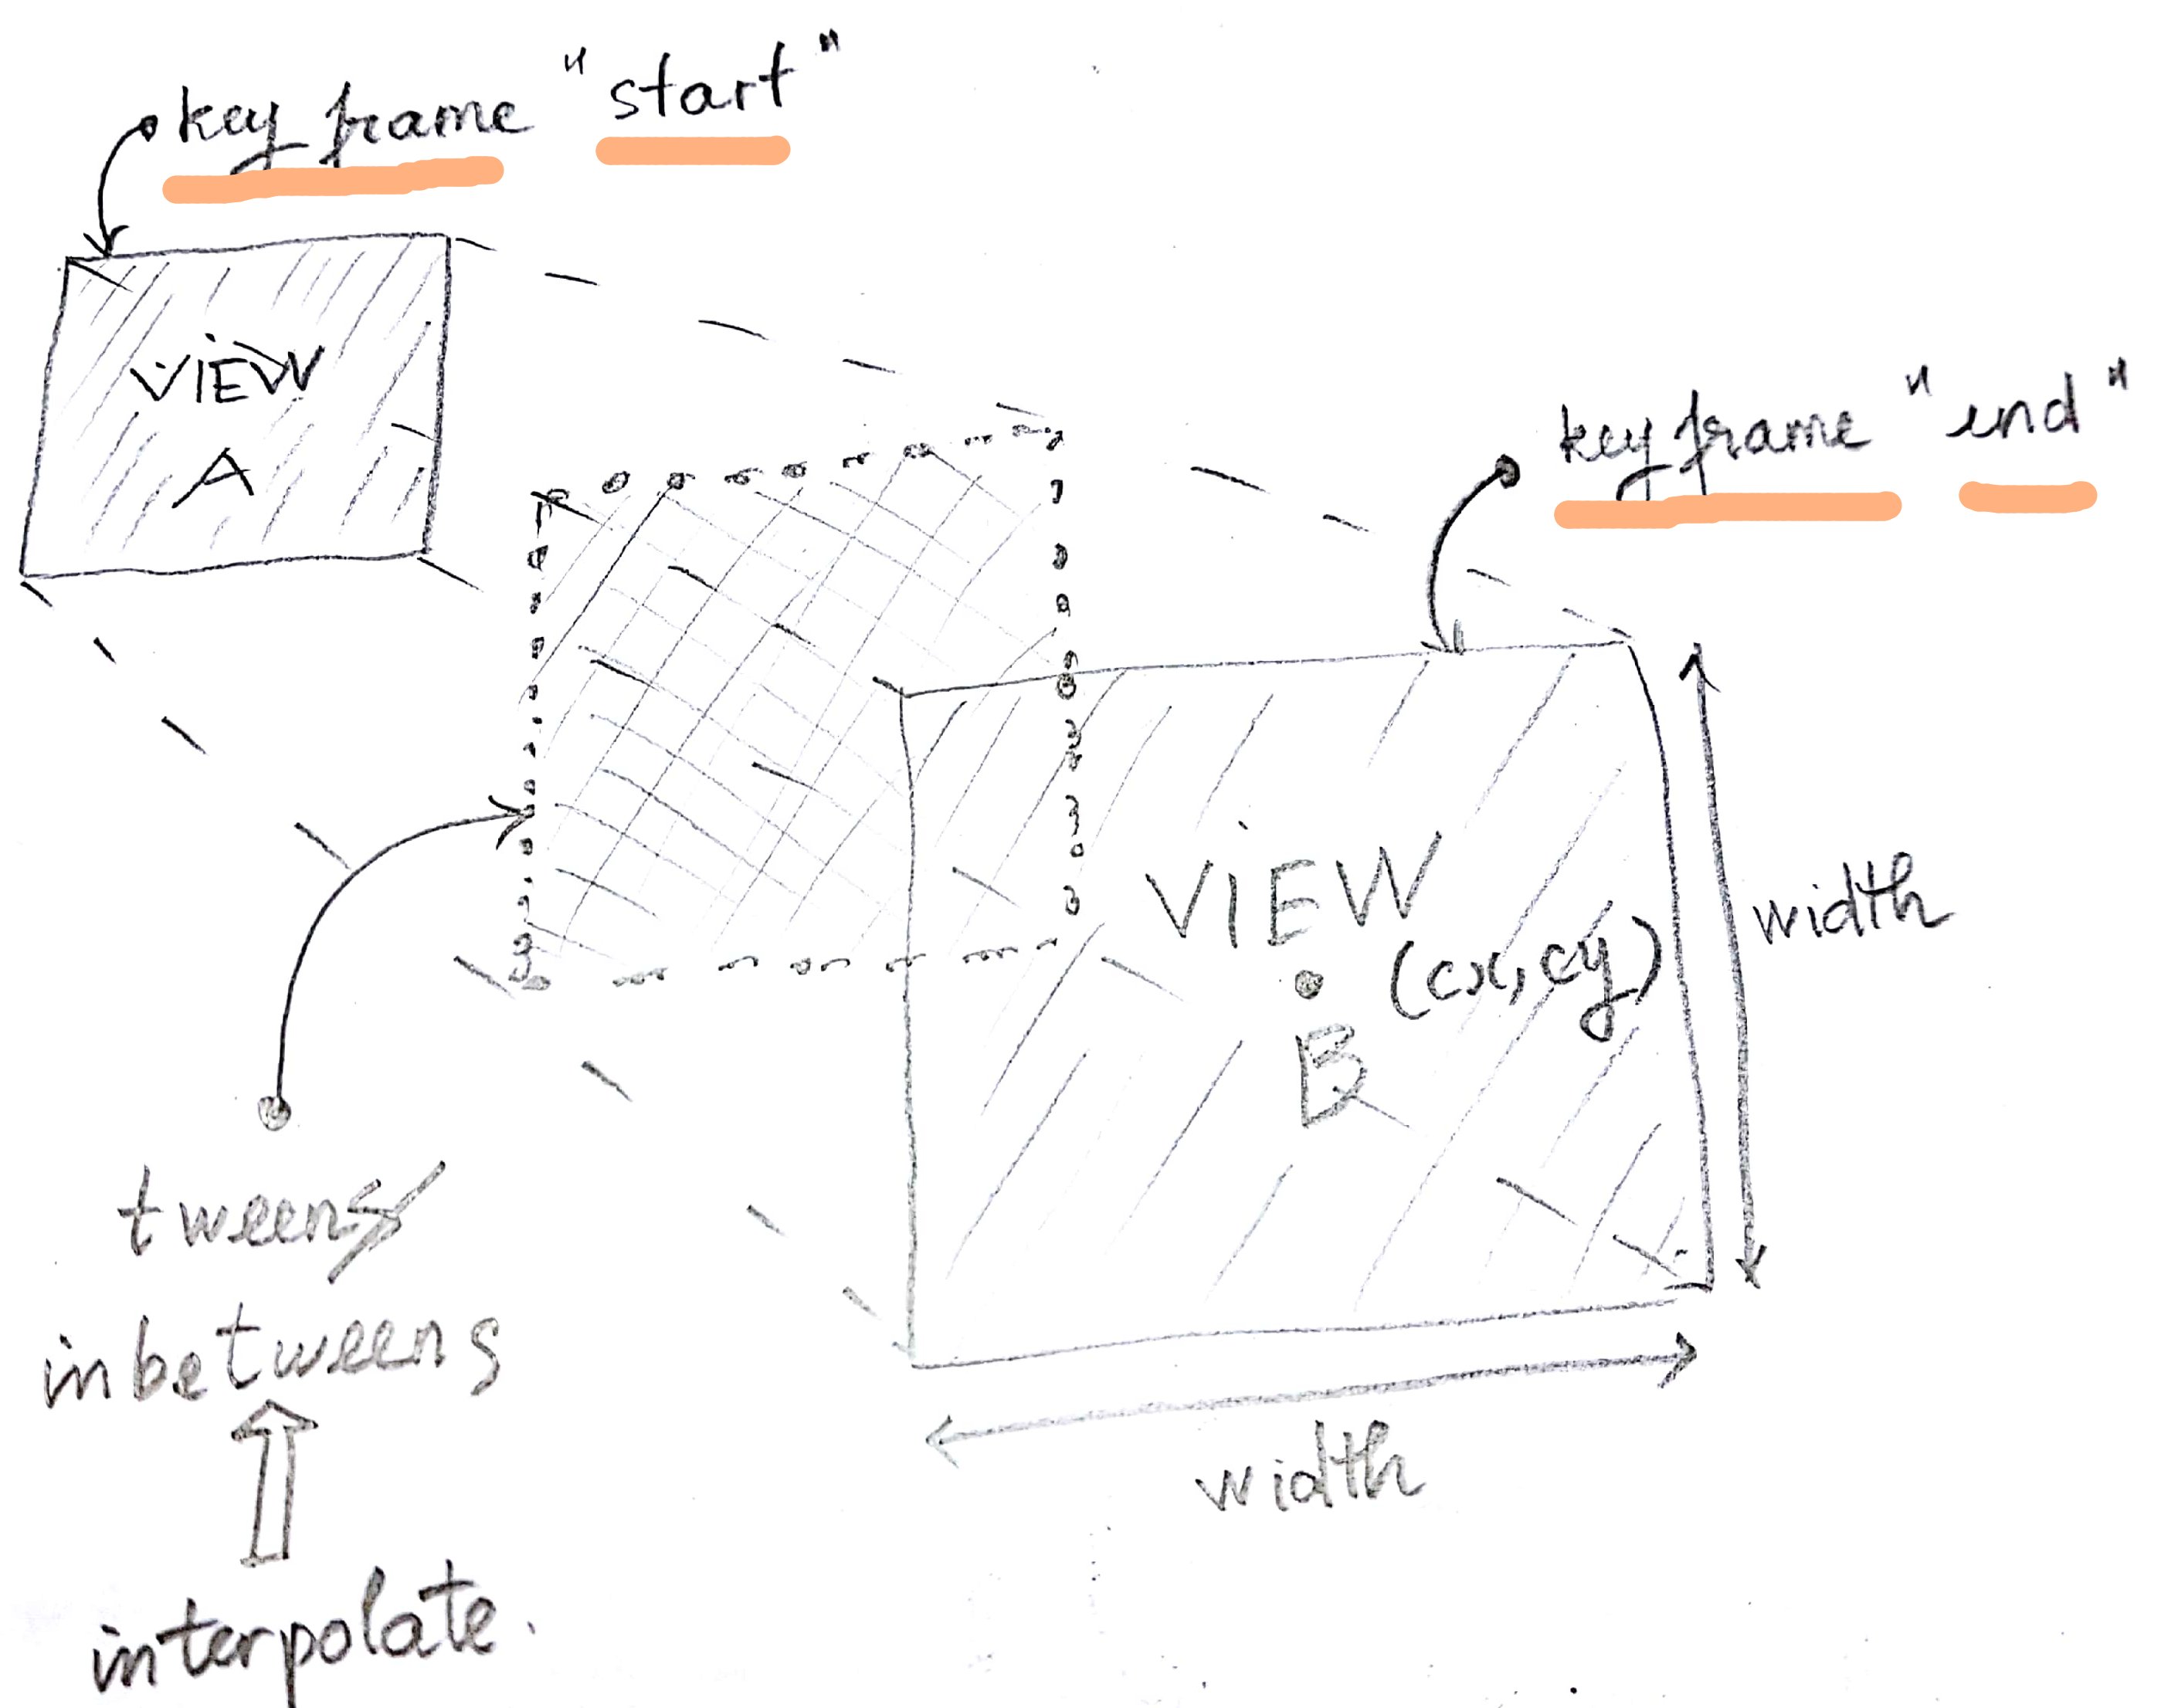 key frame "start"
VIEW
A
key frame "end"
VIEW
(cx, cy)
B
width
width
tweens/
inbetweens
interpolate.